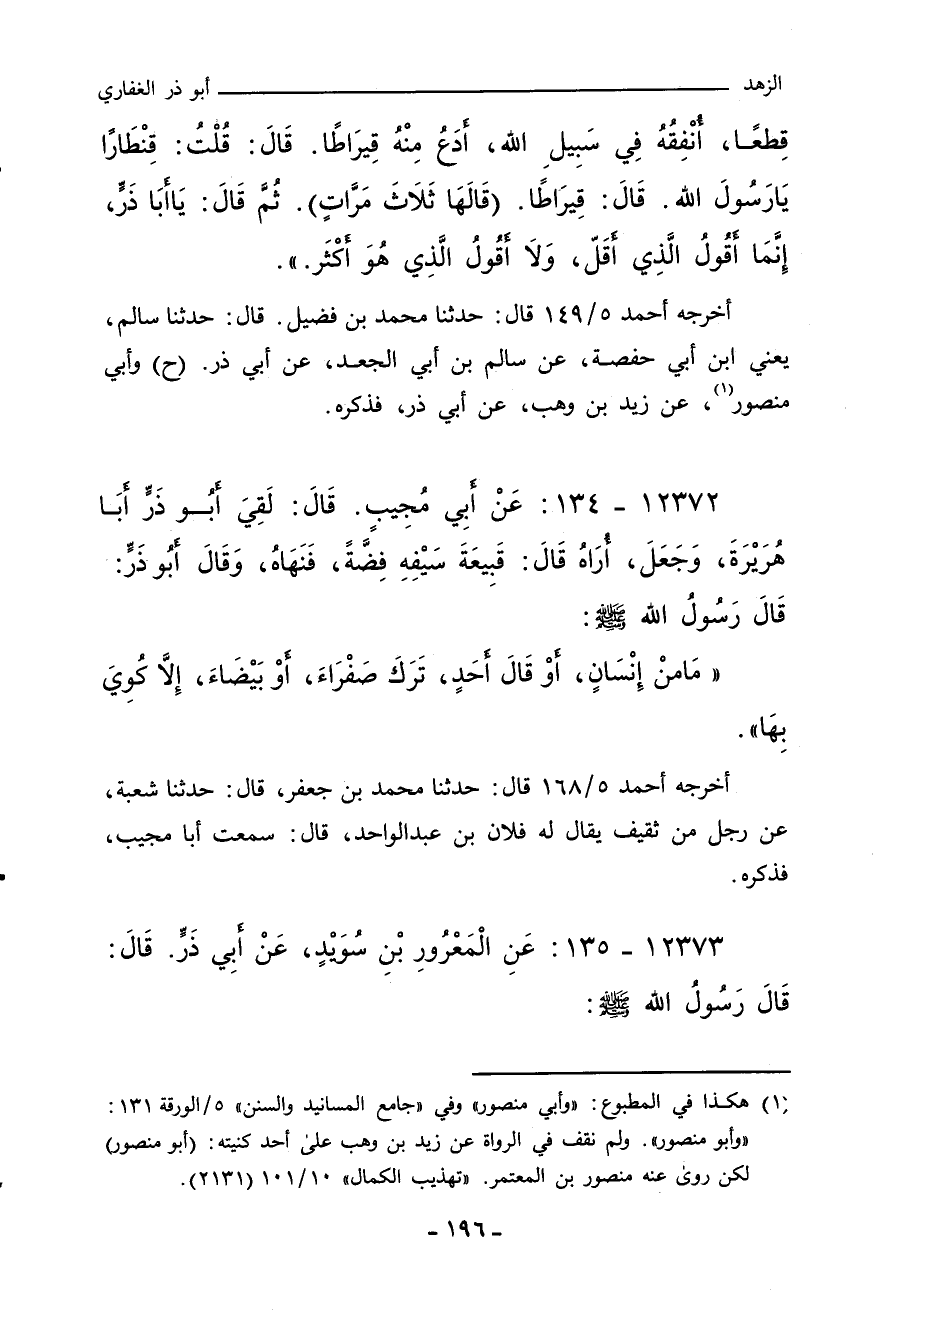 الزهد ــــــــــ أبو ذر الغفاري
قِطعًـا، أُنْفِقُهُ فِي سَبِيلِ الله، أَدَعُ مِنْهُ قِيرَاطًا. قَالَ: قُلْتُ: قِنْطَارًا
يَارَسُولَ الله. قَالَ: قِيرَاطًا. (قَالَهَا ثَلَاثَ مَرَّاتٍ). ثُمَّ قَالَ: يَاأَبَا ذَرٍّ،
إِنَّمَا أَقُولُ الَّذِي أَقَلّ، وَلَا أَقُولُ الَّذِي هُوَ أَكْثَر.».
أخرجه أحمد ١٤٩/٥ قال: حدثنا محمد بن فضيل. قال: حدثنا سالم،
يعني ابن أبي حفصة، عن سالم بن أبي الجعد، عن أبي ذر. (ح) وأبي
منصور(١)، عن زيد بن وهب، عن أبي ذر، فذكره.
١٢٣٧٢ ـ ١٣٤: عَنْ أَبِي مُجِيبٍ. قَالَ: لَقِيَ أَبُـو ذَرٍّ أَبَـا
هُرَيْرَةَ، وَجَعَلَ، أُرَاهُ قَالَ: قَبِيعَةَ سَيْفِهِ فِضَّةً، فَنَهَاهُ، وَقَالَ أَبُو ذَرٍّ:
قَالَ رَسُولُ الله ﷺ:
« مَامِنْ إِنْسَانٍ، أَوْ قَالَ أَحَدٍ، تَرَكَ صَفْرَاءَ، أَوْ بَيْضَاءَ، إِلَّا كُوِيَ
بِهَا».
أخرجه أحمد ١٦٨/٥ قال: حدثنا محمد بن جعفر، قال: حدثنا شعبة،
عن رجل من ثقيف يقال له فلان بن عبدالواحد، قال: سمعت أبا مجيب،
فذكره.
١٢٣٧٣ ـ ١٣٥: عَنِ الْمَعْرُورِ بْنِ سُوَيْدٍ، عَنْ أَبِي ذَرٍّ. قَالَ:
قَالَ رَسُولُ الله ﷺ:
(١) هكـذا في المطبوع: «وأبي منصور» وفي «جامع المسانيد والسنن» ٥/الورقة ١٣١:
«وأبو منصور». ولم نقف في الرواة عن زيد بن وهب علىٰ أحد كنيته: (أبو منصور)
لكن روىٰ عنه منصور بن المعتمر. «تهذيب الكمال» ١٠١/١٠ (٢١٣١).
ـ ١٩٦ ـ